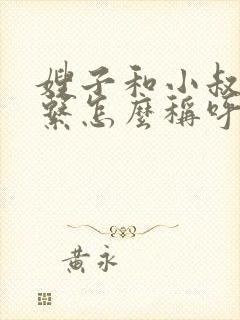 嫂子和小叔
繫怎麼稱呼
黃永